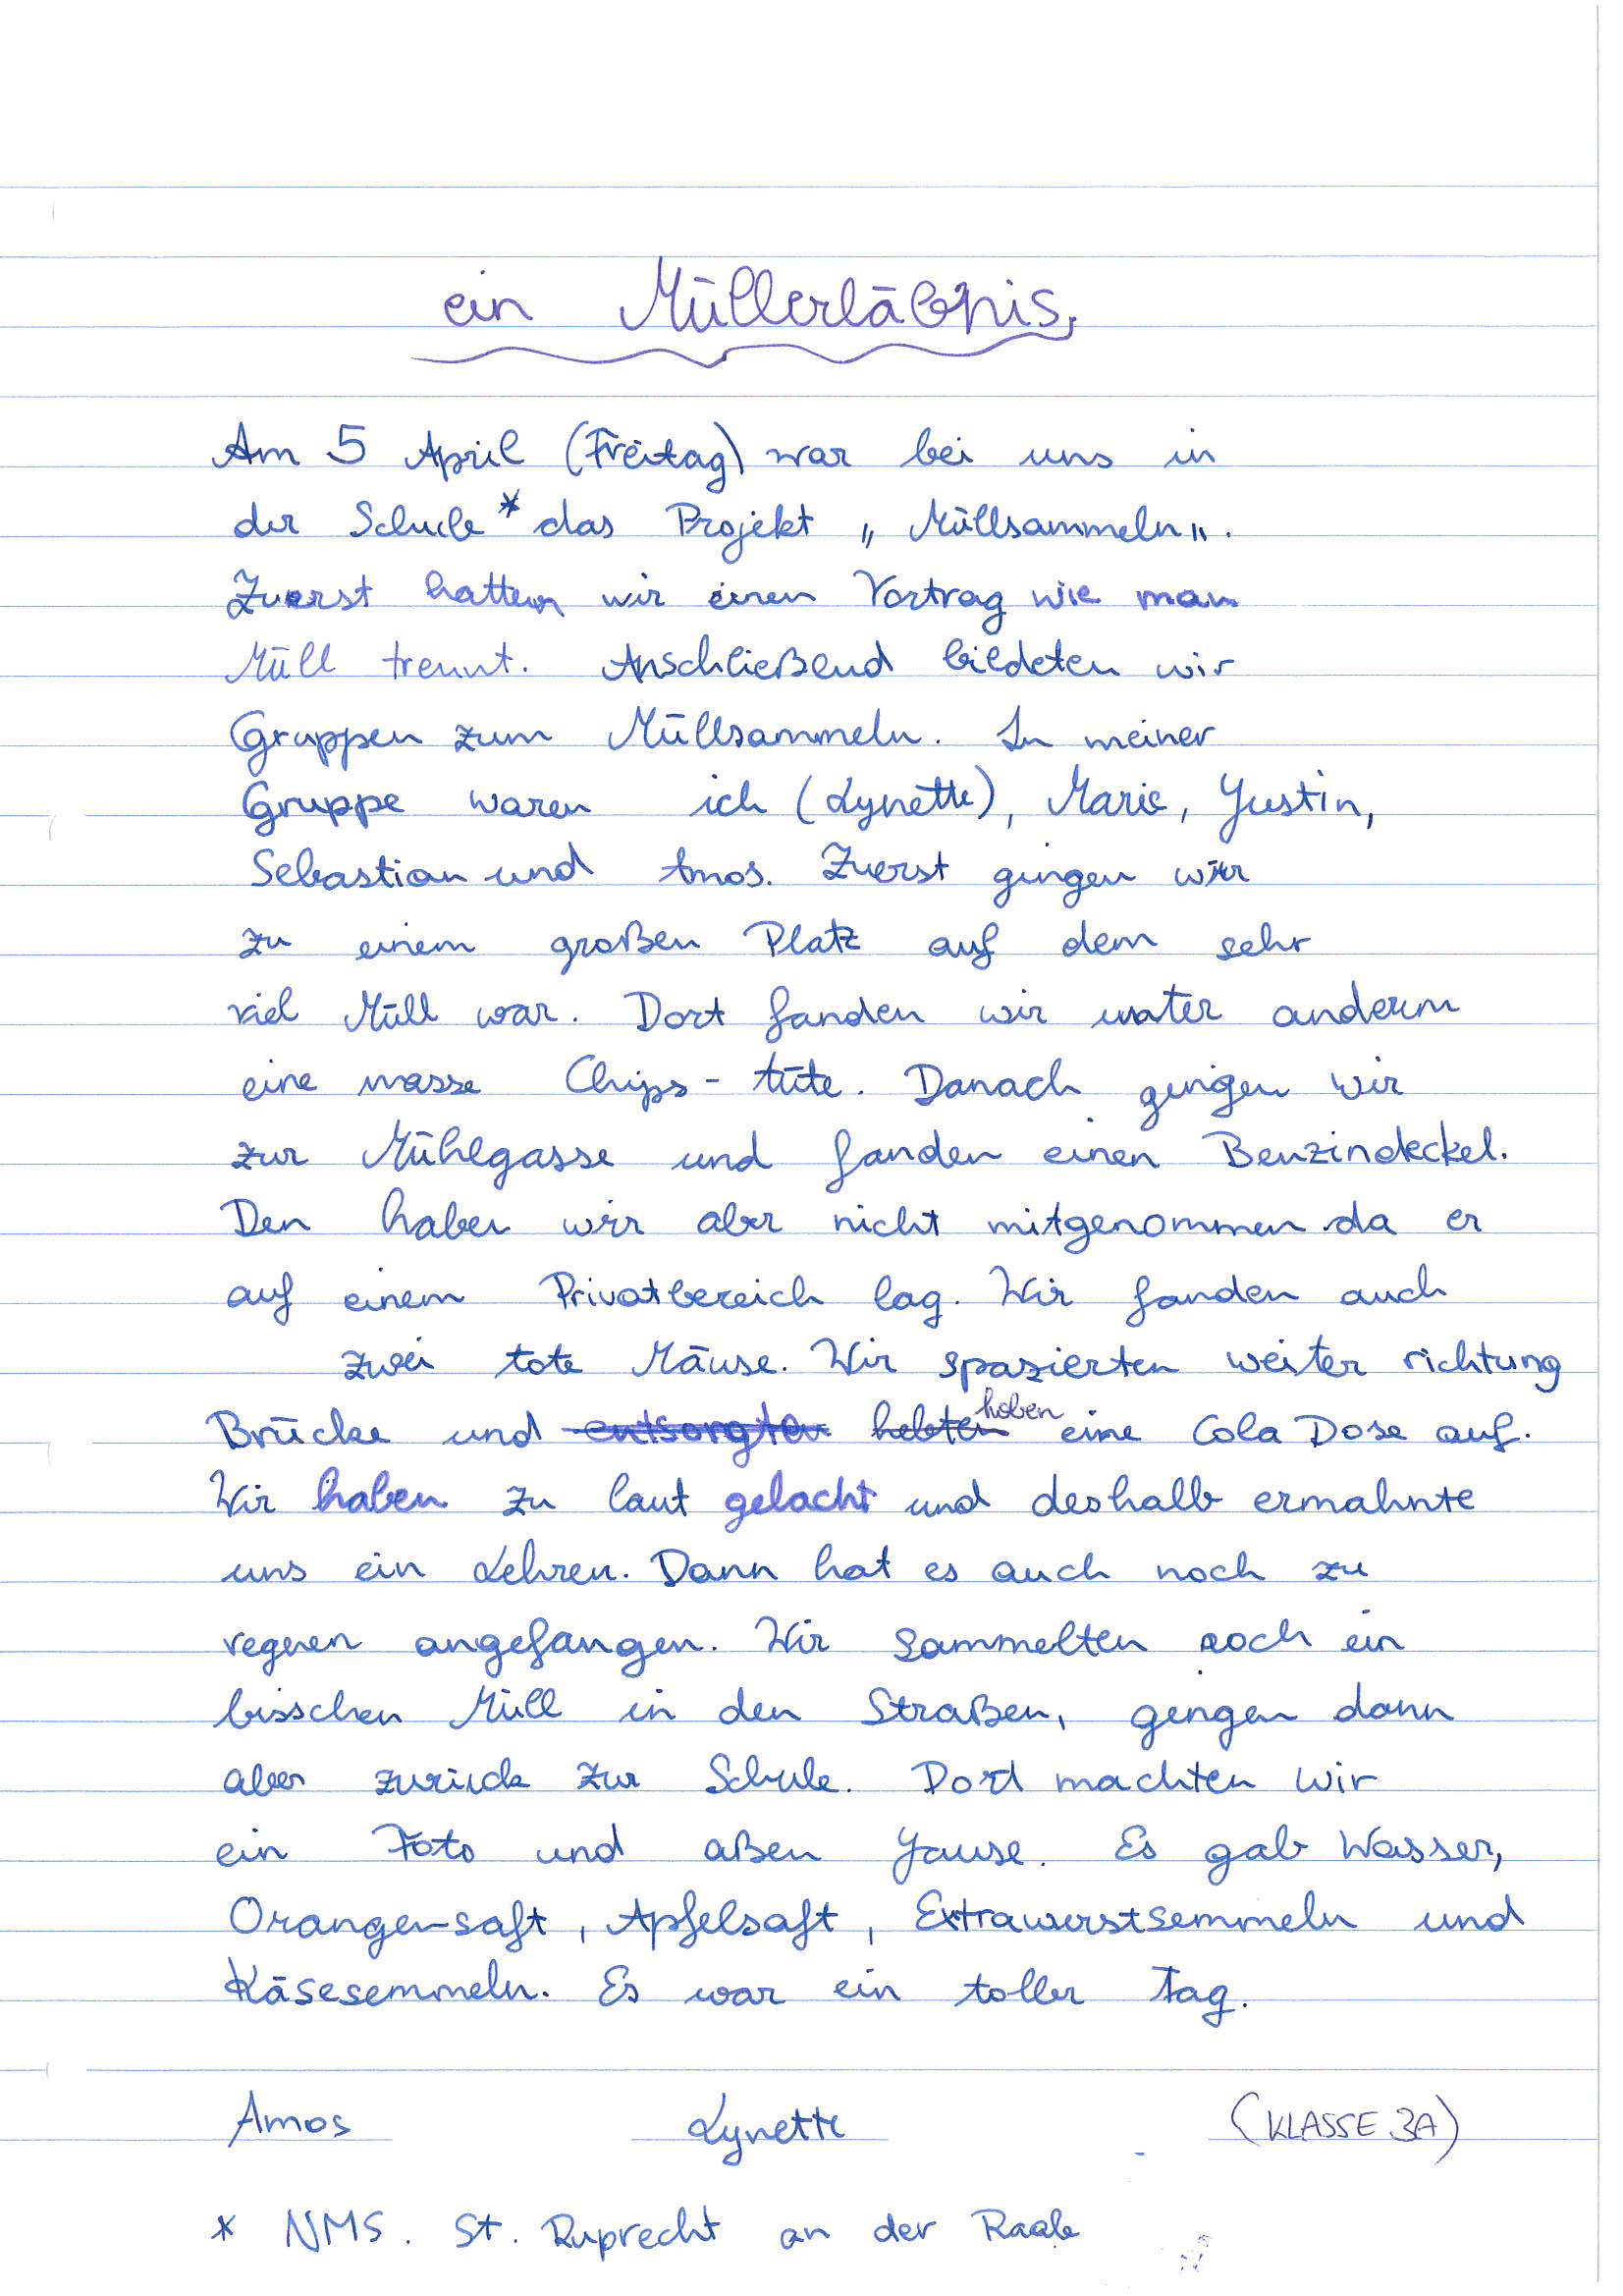 ein Müllerläbnis,
Am 5 April (Freitag) war bei uns in
der Schule * das Projekt „Müllsammeln„.
Zuerst hatten wir einen Vortrag wie man
Müll trennt. Anschließend bildeten wir
Gruppen zum Müllsammeln. In meiner
Gruppe waren ich (Lynette), Marie, Justin,
Sebastian und Amos. Zuerst gingen wir
zu einem großen Platz auf dem sehr
viel Müll war. Dort fanden wir unter anderem
eine masse Chips-tüte. Danach gingen wir
zur Mühlgasse und fanden einen Benzindeckel.
Den haben wir aber nicht mitgenommen da er
auf einem Privatbereich lag. Wir fanden auch
zwei tote Mäuse. Wir spazierten weiter richtung
Brücke und entsorgten hebten hoben eine Cola Dose auf.
Wir haben zu laut gelacht und deshalb ermahnte
uns ein Lehrer. Dann hat es auch noch zu
regnen angefangen. Wir sammelten noch ein
bisschen Müll in den Straßen, gingen dann
aber zurück zur Schule. Dord machten wir
ein Foto und aßen Jause. Es gab Wasser,
Orangensaft, Apfelsaft, Extrawurstsemmeln und
Käsesemmeln. Es war ein toller Tag.
Amos Lynette (KLASSE 3A)
* NMS. St. Ruprecht an der Raab